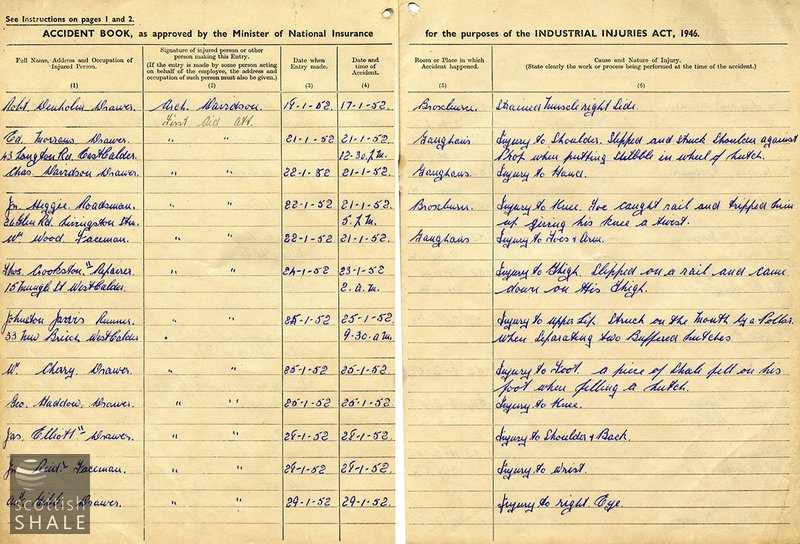 See Instructions on pages 1 and 2.
ACCIDENT BOOK, as approved by the Minister of National Insurance for the purposes of the INDUSTRIAL INJURIES ACT, 1946.
Full Name, Address and Occupation of Injured Person.
(1)
Signature of injured person or other person making this Entry.
(If the entry is made by some person acting on behalf of the employee, the address and occupation of such person must also be given.)
(2)
Date when Entry made.
(3)
Date and time of Accident.
(4)
Room or Place in which Accident happened.
(5)
Cause and Nature of Injury.
(State clearly the work or process being performed at the time of the accident.)
(6)
Robt Denholm Drawer. Arch. Davidson. 19-1-52. 17-1-52. Broxburn. Strained muscle right side.
First Aid Att.
Ed. Drawer. " " 21-1-52 21-1-52. Injury to Shoulder. Slipped and struck Shoulder against
43 Langton Rd. East Calder. 12-30. P.M. Prop when putting in wheel of hutch.
Chas. Davidson Drawer " " 22-1-52 21-1-52. Injury to Hand.
Jn. Heggie Roadsman. " " 22-1-52 21-1-52. Broxburn. Injury to Knee. Toe caught rail and tripped him
Rd. Livingston Stn. 5. P.M. up giving his knee a twist.
Wm Wood. Faceman. " " 22-1-52 21-1-52. Injury to Toes & Arm.
Thos. Crookston Repairer. " " 24-1-52 23-1-52 Injury to Thigh. Slipped on a rail and came
15 Mungle St West Calder. 2. a.m. down on His Thigh.
Johnston Jarvis Runner. " " 25-1-52 25-1-52. Injury to upper Lip. Struck on the Mouth by a
33 New Breich West Calder " 9-30. a.m. When Separating two Buffered hutches.
W. Cherry. Drawer. " " 25-1-52 25-1-52. Injury to Foot. a piece of Shale fell on his
foot when filling a hutch.
Geo. Haddow. Drawer. " " 25-1-52 25-1-52. Injury to Knee.
Jas. Elliott Drawer. " " 28-1-52 28-1-52. Injury to Shoulder & Back.
Jn Faceman. " " 29-1-52 28-1-52. Injury to wrist.
Drawer. " " 29-1-52 29-1-52. Injury to right Eye.
scottish
SHALE